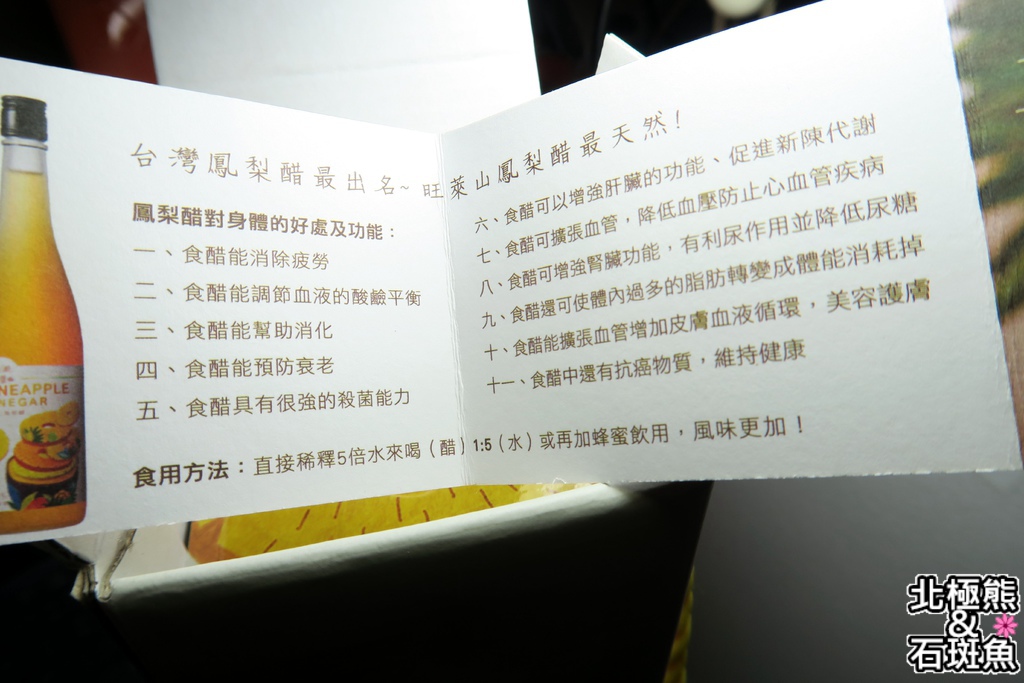 台灣鳳梨醋最出名~旺萊山鳳梨醋最天然!
鳳梨醋對身體的好處及功能：
一、食醋能消除疲勞
二、食醋能調節血液的酸鹼平衡
三、食醋能幫助消化
四、食醋能預防衰老
五、食醋具有很強的殺菌能力
六、食醋可以增強肝臟的功能、促進新陳代謝
七、食醋可擴張血管，降低血壓防止心血管疾病
八、食醋可增強腎臟功能，有利尿作用並降低尿糖
九、食醋還可使體內過多的脂肪轉變成體能消耗掉
十、食醋能擴張血管增加皮膚血液循環，美容護膚
十一、食醋中還有抗癌物質，維持健康
食用方法：直接稀釋5倍水來喝（醋）1:5（水）或再加蜂蜜飲用，風味更加！
NEAPPLE
NEGAR
北極熊
&
石斑魚